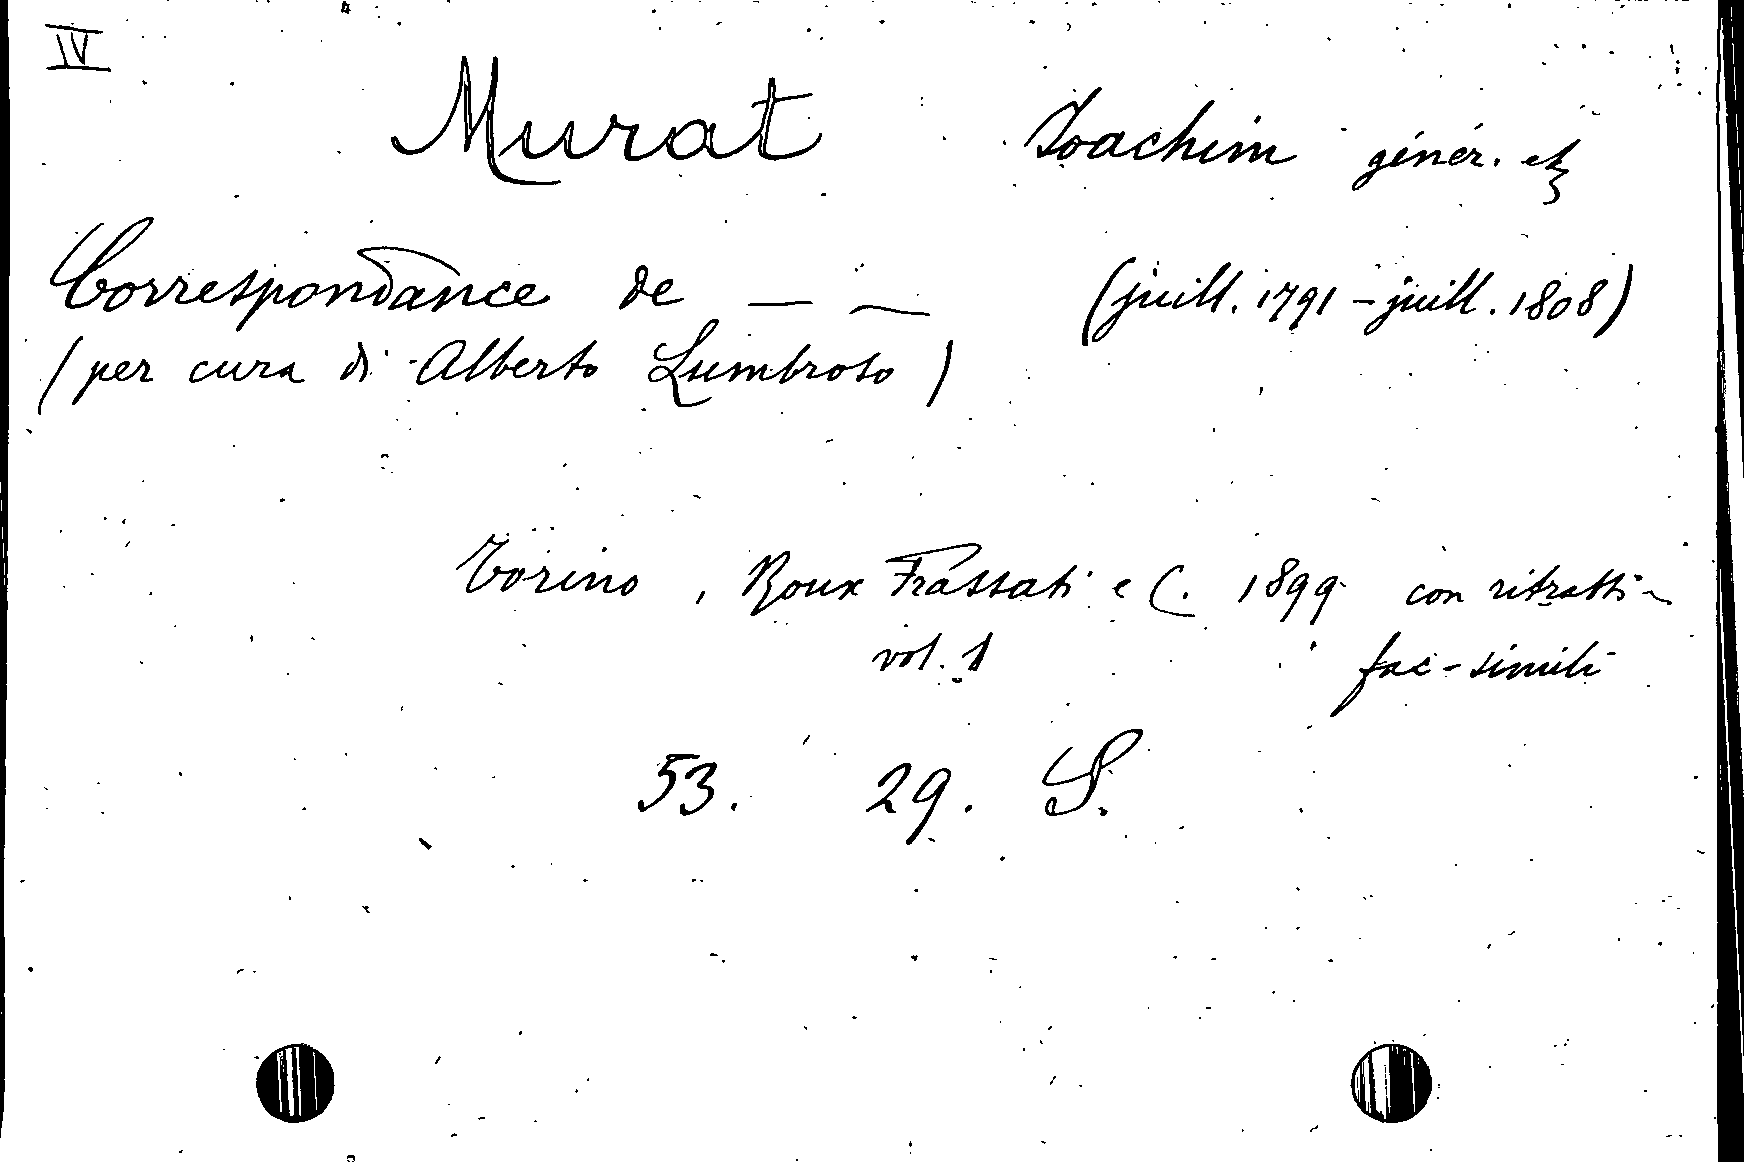 IV
Murat Joachim génér. etc
Correspondance de — — (juill. 1791 – juill. 1808)
(per cura di Alberto Lumbroso)
Torino, Roux Frassati e C. 1899 con ritratti e
vol. 1 fac-simili
53. 29. S.